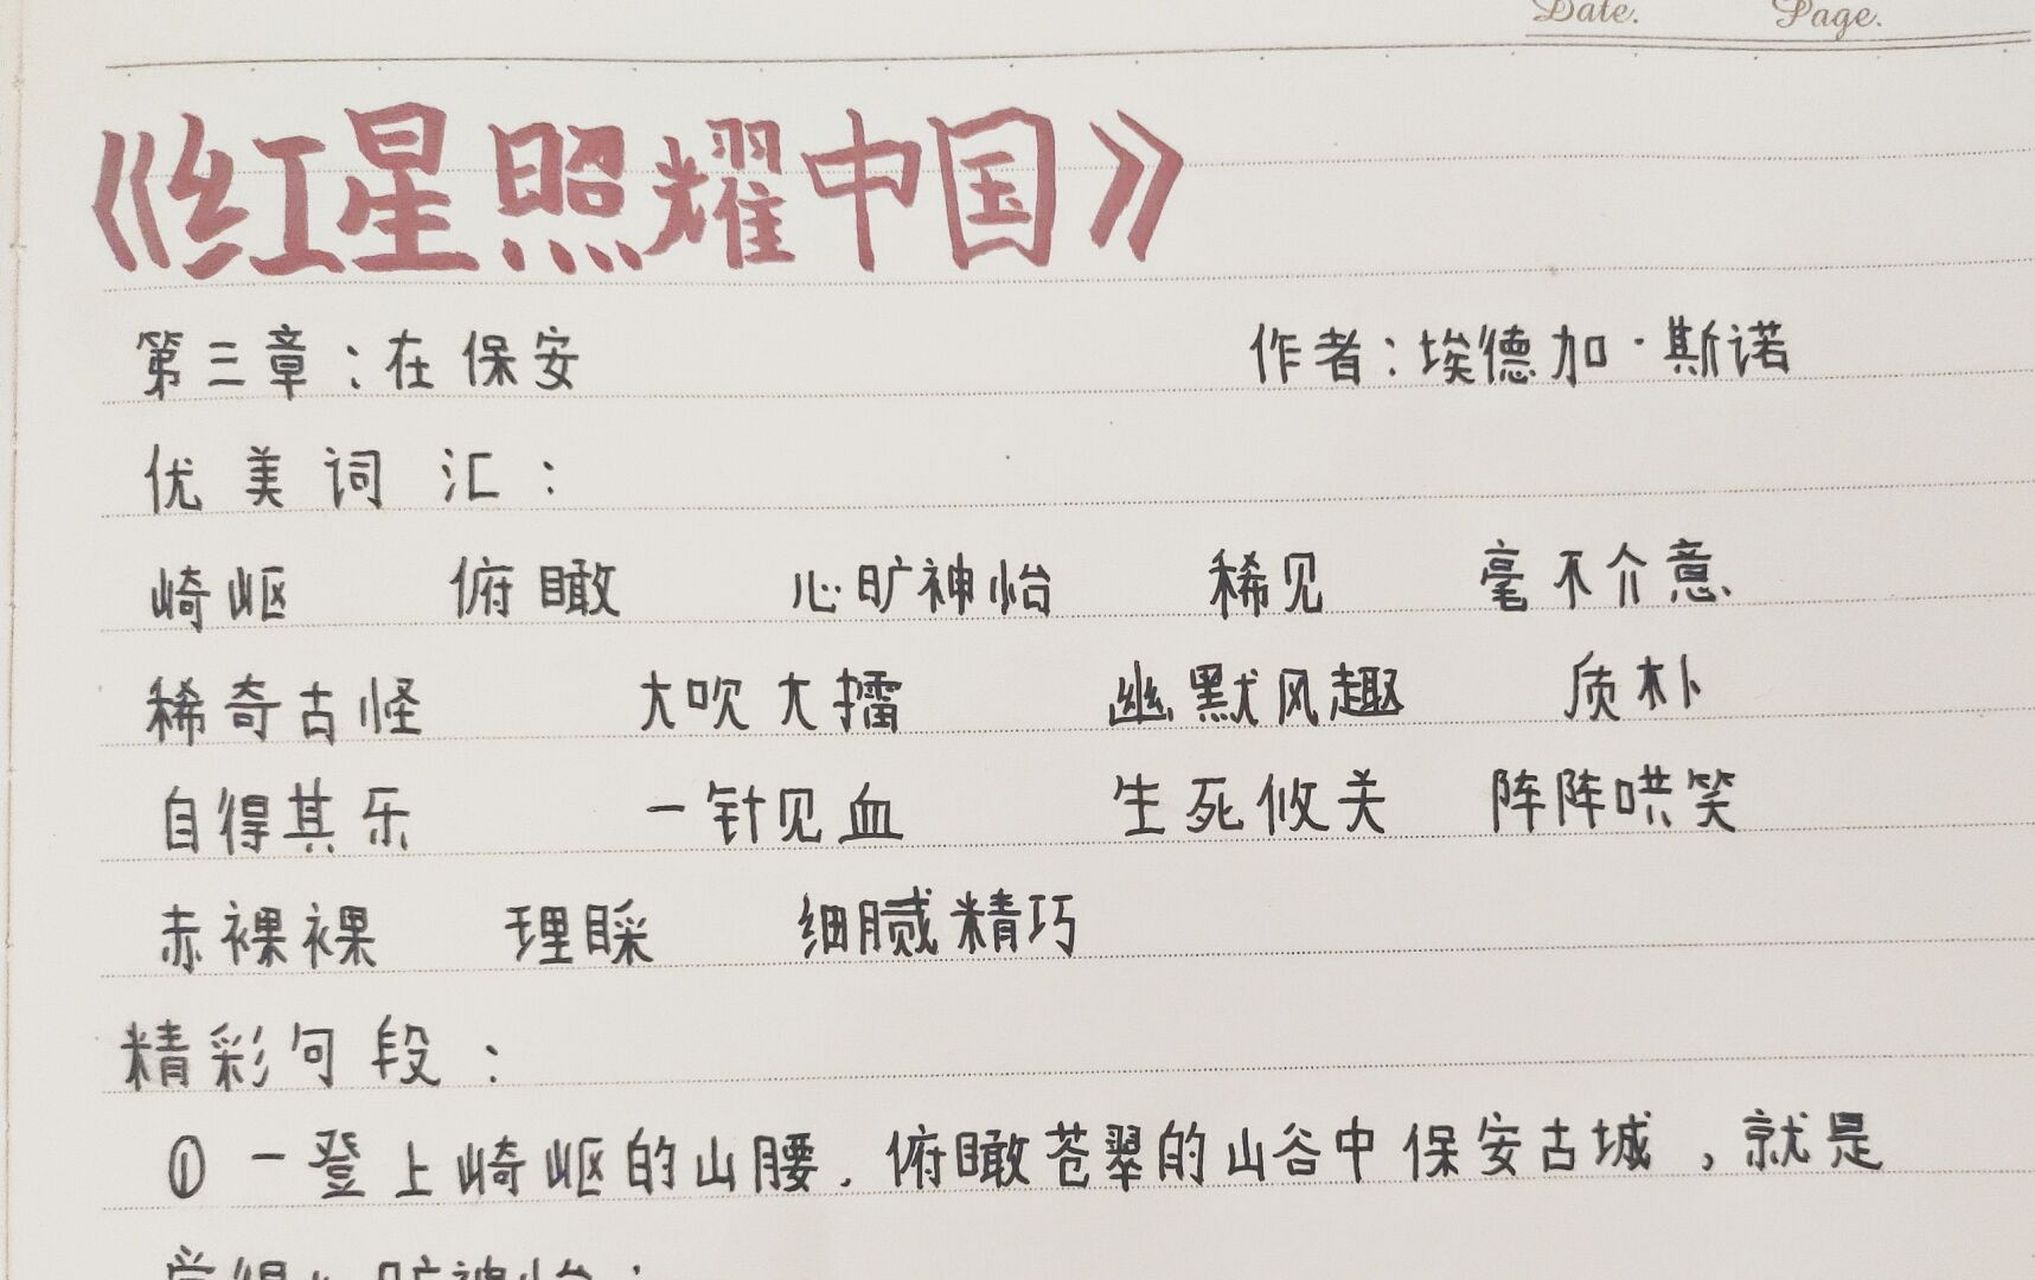 Date. Page.
《红星照耀中国》
第三章：在保安 作者：埃德加·斯诺
优美词汇：
崎岖 俯瞰 心旷神怡 稀见 毫不介意
稀奇古怪 大吹大擂 幽默风趣 质朴
自得其乐 一针见血 生死攸关 阵阵哄笑
赤裸裸 理睬 细腻精巧
精彩句段：
① 一登上崎岖的山腰．俯瞰苍翠的山谷中保安古城，就是
觉得心旷神怡；